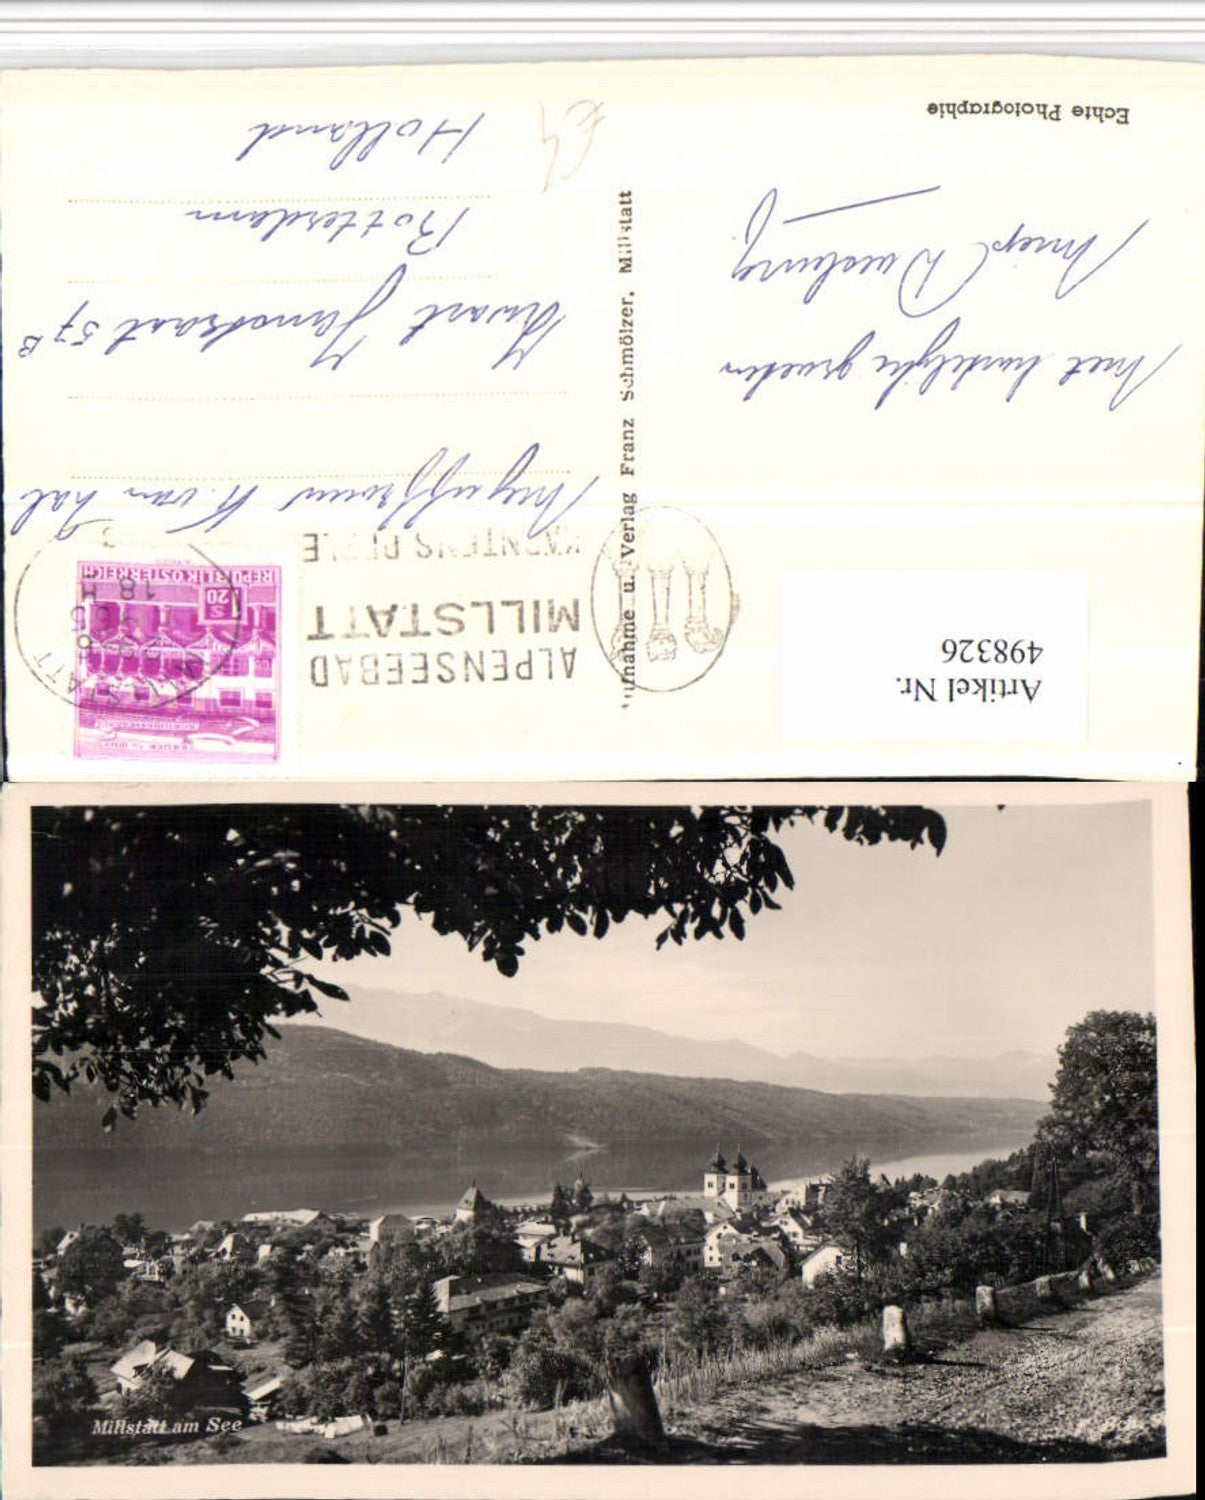 Echte Photographie
Met hartelijke groeten
Miep
Aufnahme u. Verlag Franz Schmölzer, Millstatt
Artikel Nr.
498326
ALPENSEEBAD
MILLSTATT
KÄRNTENS PERLE
REPUBLIK ÖSTERREICH
S 1.20
MILLSTATT
18 H
Mejuffrouw K. van
Zwart Janstraat 57 B
Rotterdam
Holland
Millstatt am See